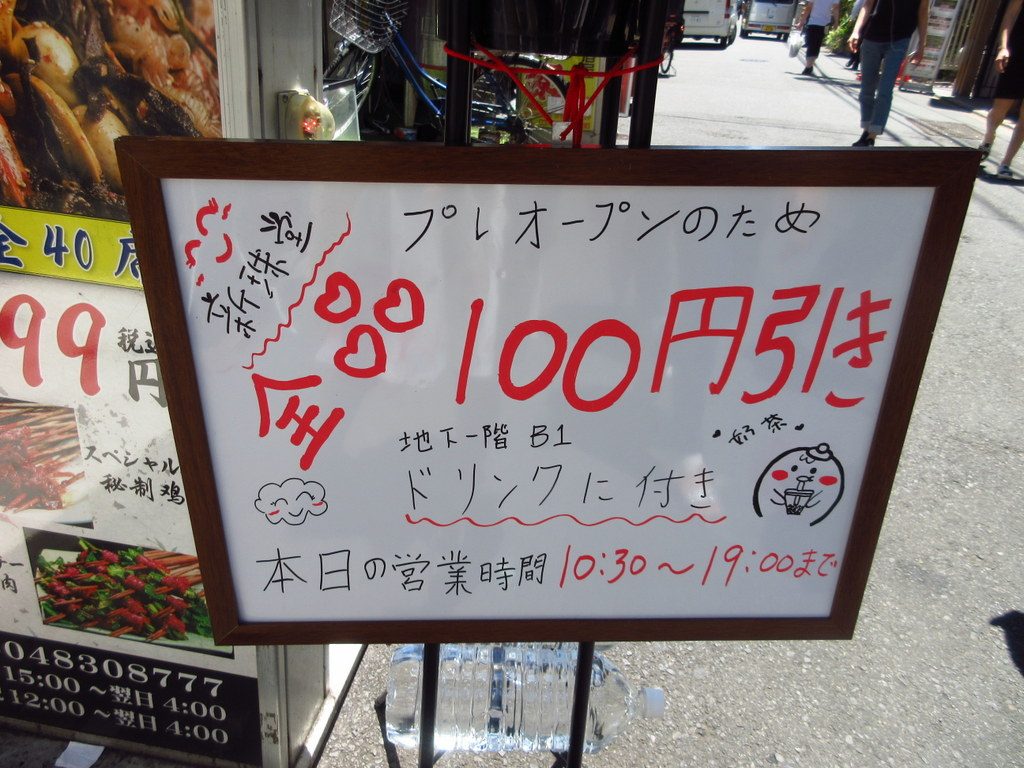 プレオープンのため
全 100円引き
地下一階 B1
ドリンクに付き
奶茶
本日の営業時間 10:30～19:00まで
全40店
99
税込
円
スペシャル
秘制鸡
肉
048308777
15:00～翌日4:00
12:00～翌日4:00